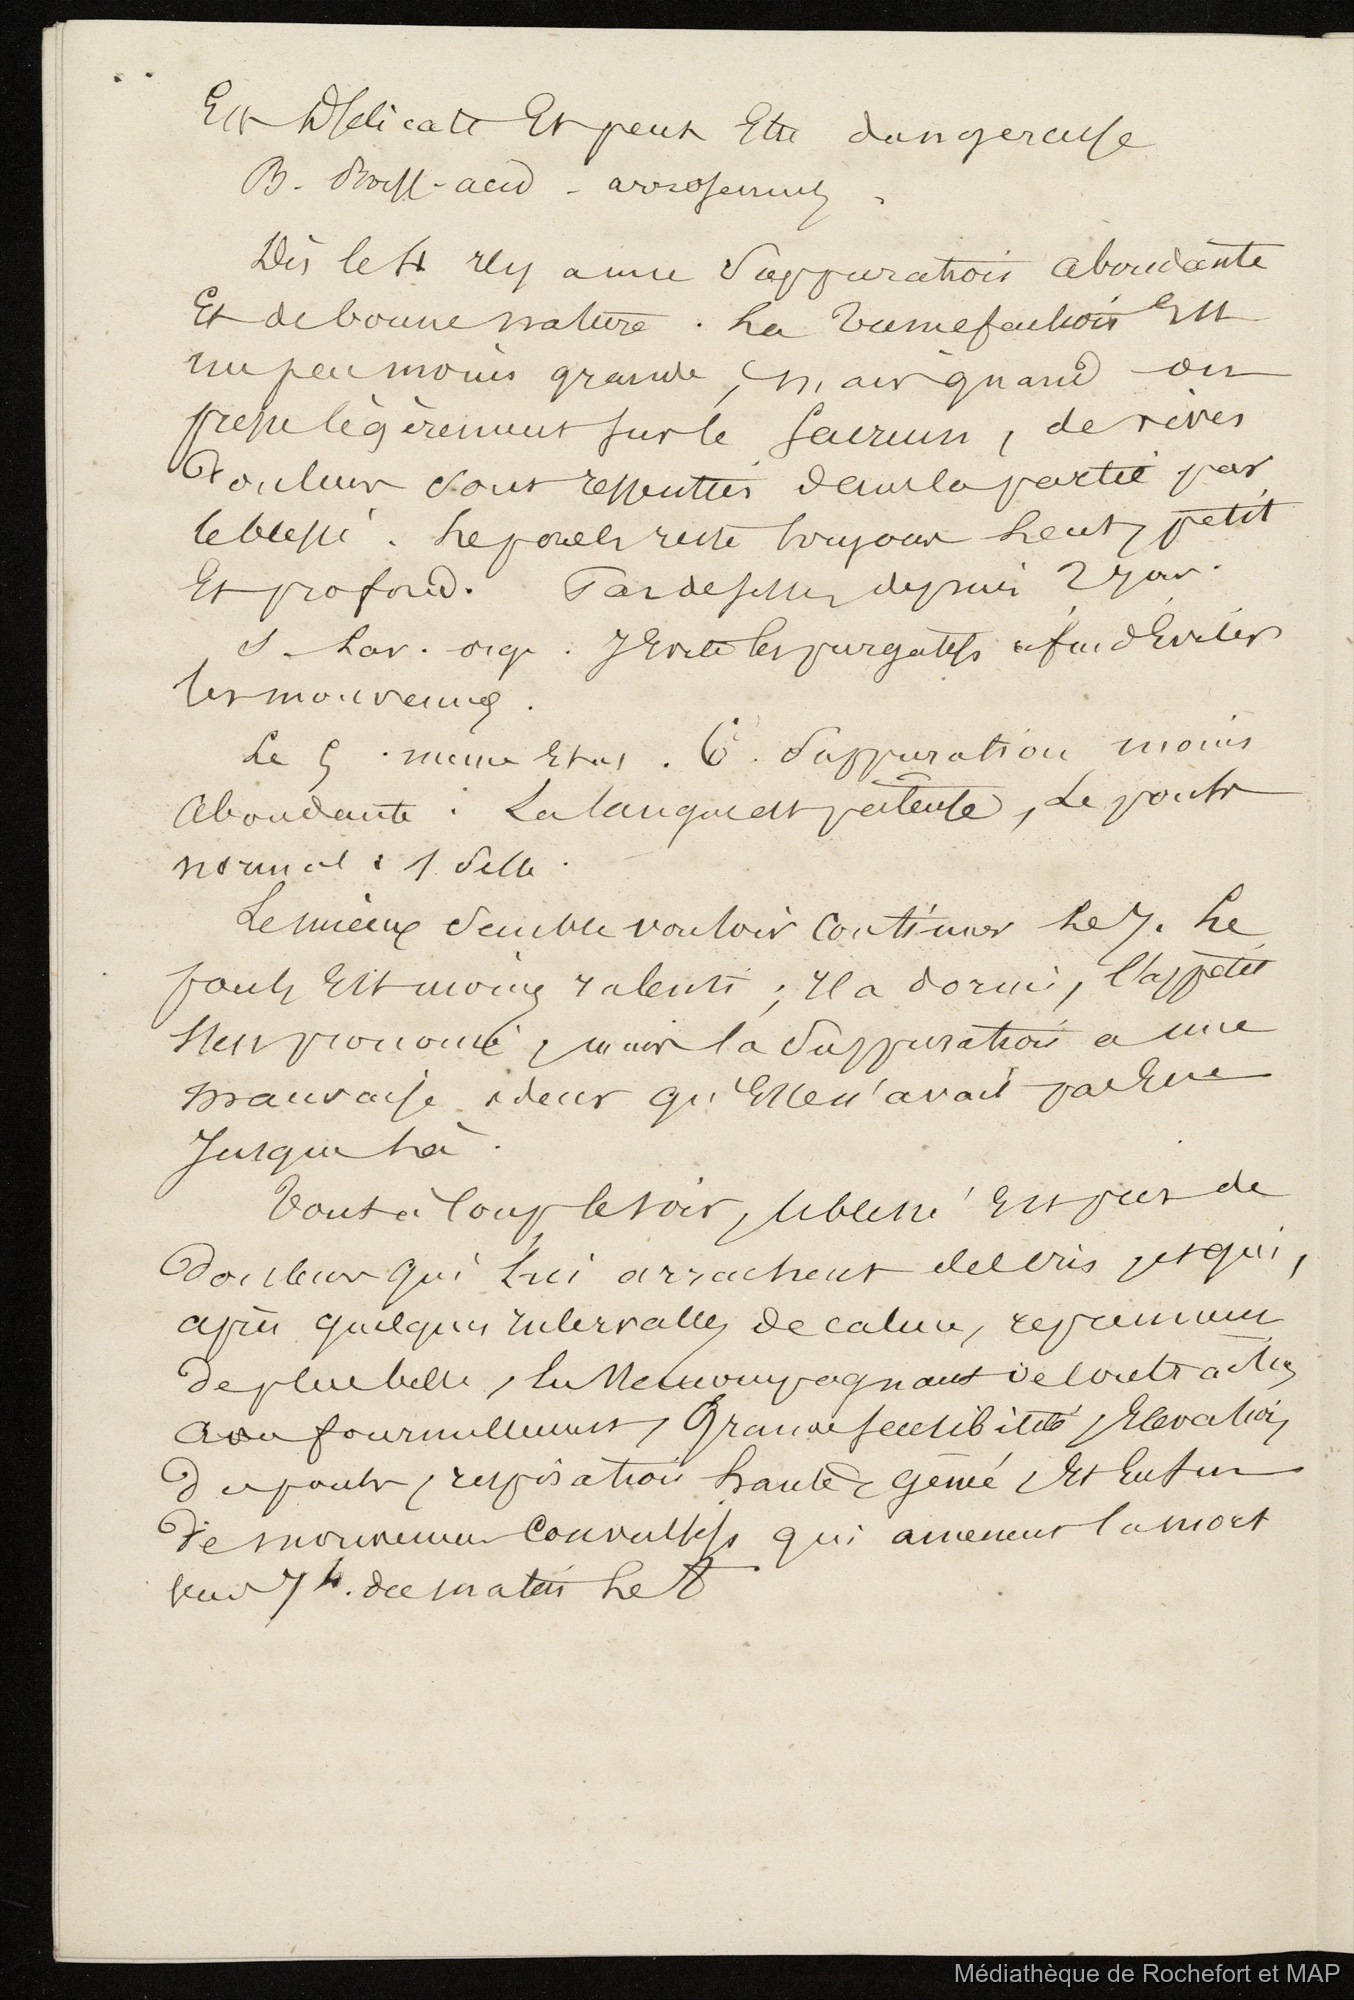 Est délicate et peut être dangereuse
B. Boiss. acid. arrosements.
Dès le 4 il y a une suppuration abondante
et de bonne nature. La tuméfaction est
un peu moins grande, mais quand on
presse légèrement sur le sacrum, de vives
douleurs sont ressenties dans la partie par
le blessé. Le pouls reste toujours lent, petit
et profond. Pas de selles depuis 2 jours.
Lav. J'évite les purgatifs afin d'éviter
les mouvements.
Le 5. même état. 6. Suppuration moins
abondante. La langue est pâteuse, le pouls
normal. 1 selle.
Le mieux semble vouloir continuer le 7. Le
pouls est moins ralenti ; il a dormi, l'appétit
s'est prononcé, mais la suppuration a une
mauvaise odeur qu'elle n'avait pas eue
jusque là.
Tout à coup le soir, le blessé est pris de
douleurs qui lui arrachent des cris, et qui,
après quelques intervalles de calme, reprennent
de plus belle, en s'accompagnant de contractions
avec fourmillements, grande sensibilité, élévation
du pouls, respiration haute, gênée, et enfin
de mouvements convulsifs qui amènent la mort
vers 7 h. du matin le 8